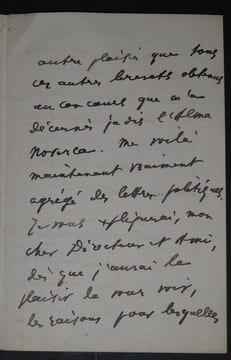 autre plaisir que tous
ces autres brevets obtenus
au concours que m'a
décernés jadis l'Alma
Noverca. Me voilà
maintenant vraiment
agrégé des lettres politiques.
Je vous expliquerai, mon
cher Directeur et Ami,
dès que j'aurai le
plaisir de vous voir,
les raisons pour lesquelles